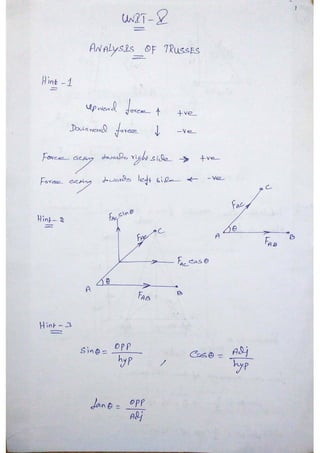 1
UNIT-8
ANALYSIS OF TRUSSES
Hint -1
Upward force ↑ +ve
Downward force ↓ -ve
Force acting towards right side → +ve
Force acting towards left side ← -ve
Hint - 2
F_AC sinθ
F_AC
C
F_AC cosθ
A
θ
F_AB
B
C
F_AC
A
θ
F_AB
B
Hint - 3
Sinθ = opp/hyp , Cosθ = Adj/hyp
tanθ = opp/Adj